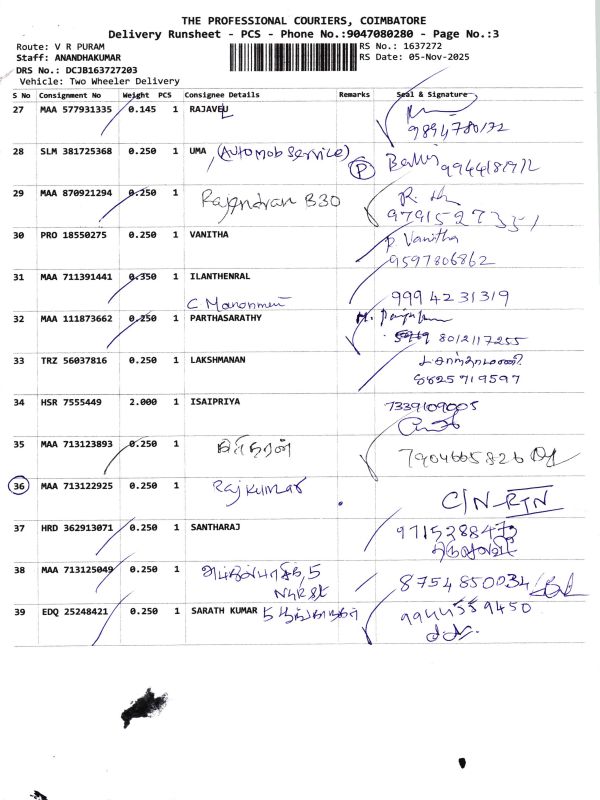 THE PROFESSIONAL COURIERS, COIMBATORE
Delivery Runsheet - PCS - Phone No.:9047080280 - Page No.:3
Route: V R PURAM RS No.: 1637272
Staff: ANANDHAKUMAR RS Date: 05-Nov-2025
DRS No.: DCJB163727203
Vehicle: Two Wheeler Delivery
S No Consignment No Weight PCS Consignee Details Remarks Seal & Signature
27 MAA 577931335 0.145 1 RAJAVEL
9894780172
28 SLM 381725368 0.250 1 UMA (Automob Service) P
29 MAA 870921294 0.250 1 Rajendran B30
9791527351
30 PRO 18550275 0.250 1 VANITHA P Vanitha
9597806862
31 MAA 711391441 0.350 1 ILANTHENRAL
9994231319
32 MAA 111873662 0.250 1 PARTHASARATHY
8012117255
33 TRZ 56037816 0.250 1 LAKSHMANAN
8825719597
34 HSR 7555449 2.000 1 ISAIPRIYA 7339109005
35 MAA 713123893 0.250 1 7904665826
36 MAA 713122925 0.250 1 Rajkumar C/N-RTN
37 HRD 362913071 0.250 1 SANTHARAJ
38 MAA 713125049 0.250 1 8754850034
39 EDQ 25248421 0.250 1 SARATH KUMAR 9944559450